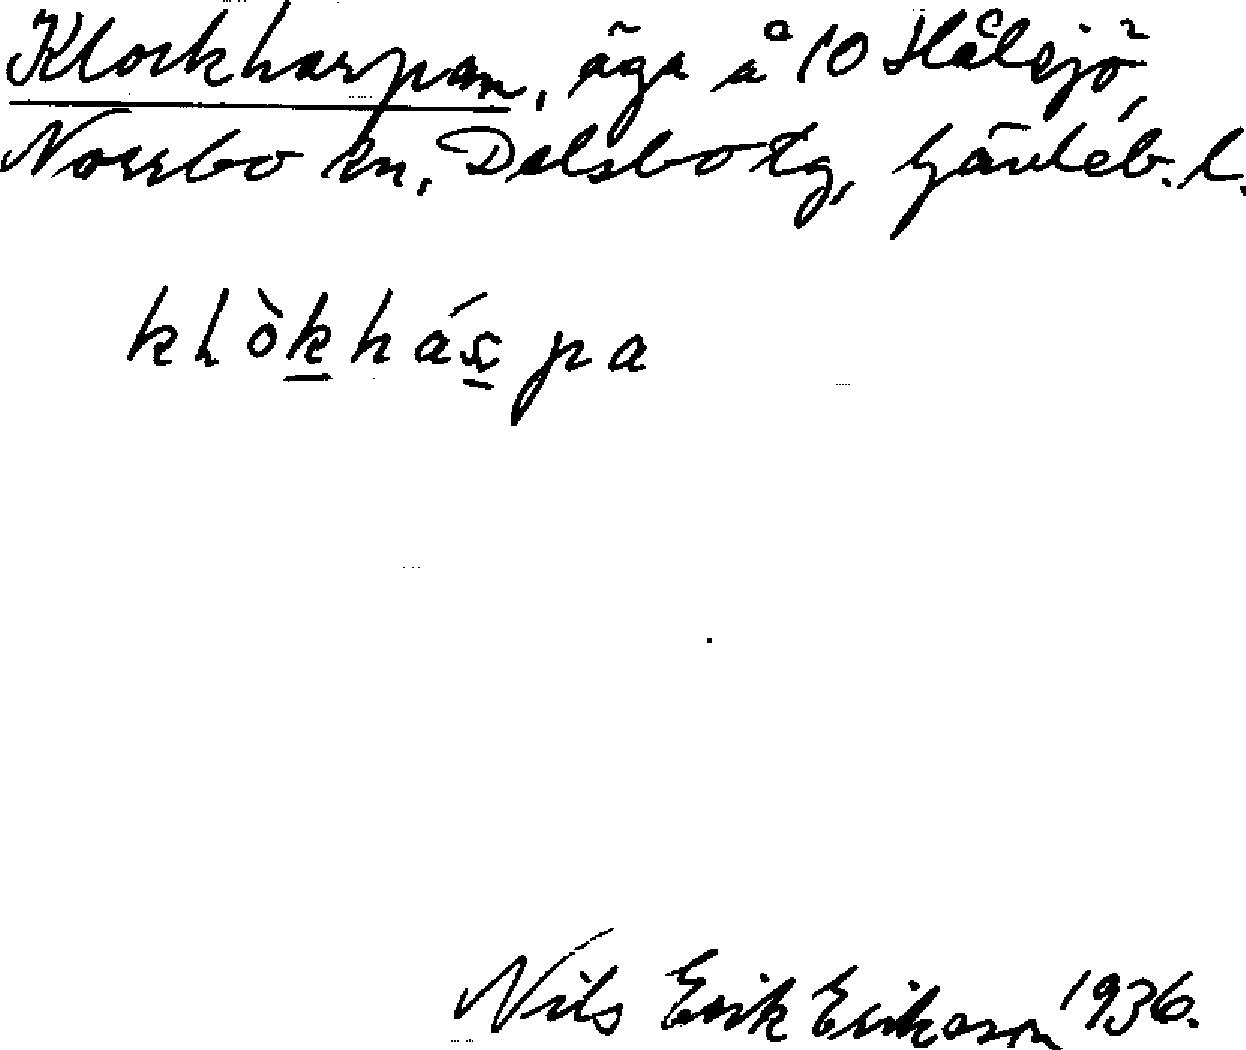 Klockharpan, äga å 10 Hålsjö,
Norrbo sn, Delsbo tg, Gävleb. l.
klòkhárpa
Nils Erik Erikson 1936.